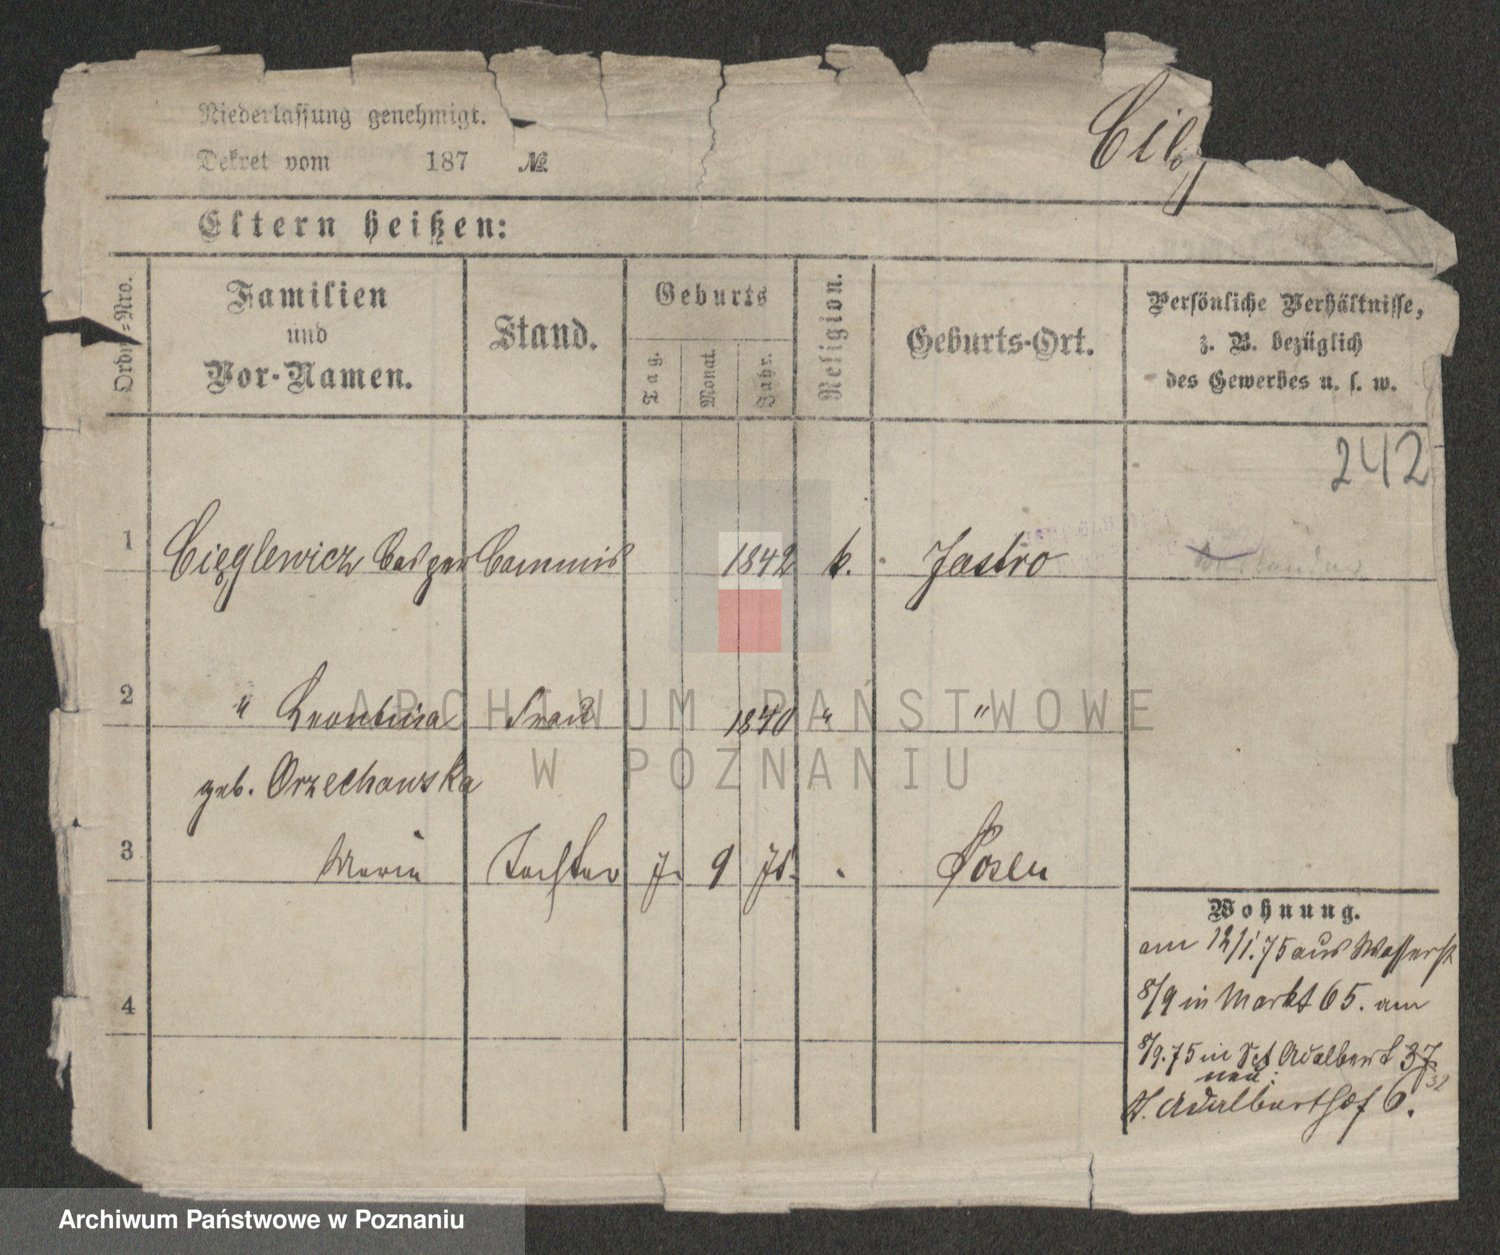 Niederlassung genehmigt.
Dekret vom 187 №
Eltern heißen:
Ordn.=Nro.
Familien
und
Vor-Namen.
Stand.
Geburts
Tag.
Monat.
Jahr.
Religion.
Geburts-Ort.
Persönliche Verhältnisse,
z. B. bezüglich
des Gewerbes u. s. w.
242
1 Cięglewicz Commis 1842 k. Jastro
2 " Leontina Frau 1840 " "
geb. Orzechowska
3 Maria Tochter 7. 9 75. Posen
Wohnung.
am 12/1.75 aus Wasserst
8/9 in Markt 65. am
8/9.75 in Sct Adalbert 37
32
neu:
St. Adalberthof 6.
4
ARCHIWUM PAŃSTWOWE
W POZNANIU
Archiwum Państwowe w Poznaniu